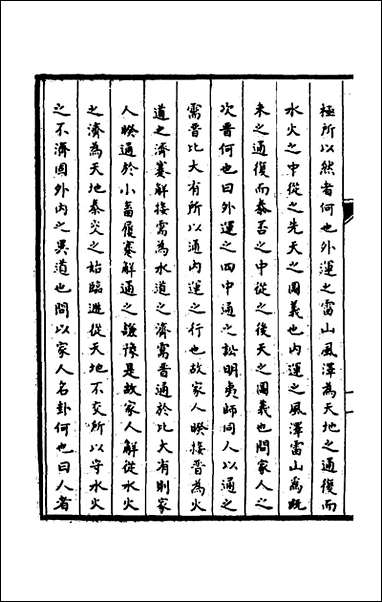 極所以然者何也外運之雷山風澤為天地之通復而
水火之中從之先天之圖義也内運之風澤雷山為既
未之通復而泰否之中從之後天之圖義也問家人之
次晉何也曰外運之四中通之訟明夷師同人以通之
需晉比大有所以通内運之行也故家人睽接晉為火
道之濟蹇解接需為水道之濟需晉通於比大有則家
人睽通於小畜履蹇解通之謙豫是故家人解從水火
之濟為天地泰交之始臨遯從天地不交所以守水火
之不濟圓外内之異道也問以家人名卦何也曰人者